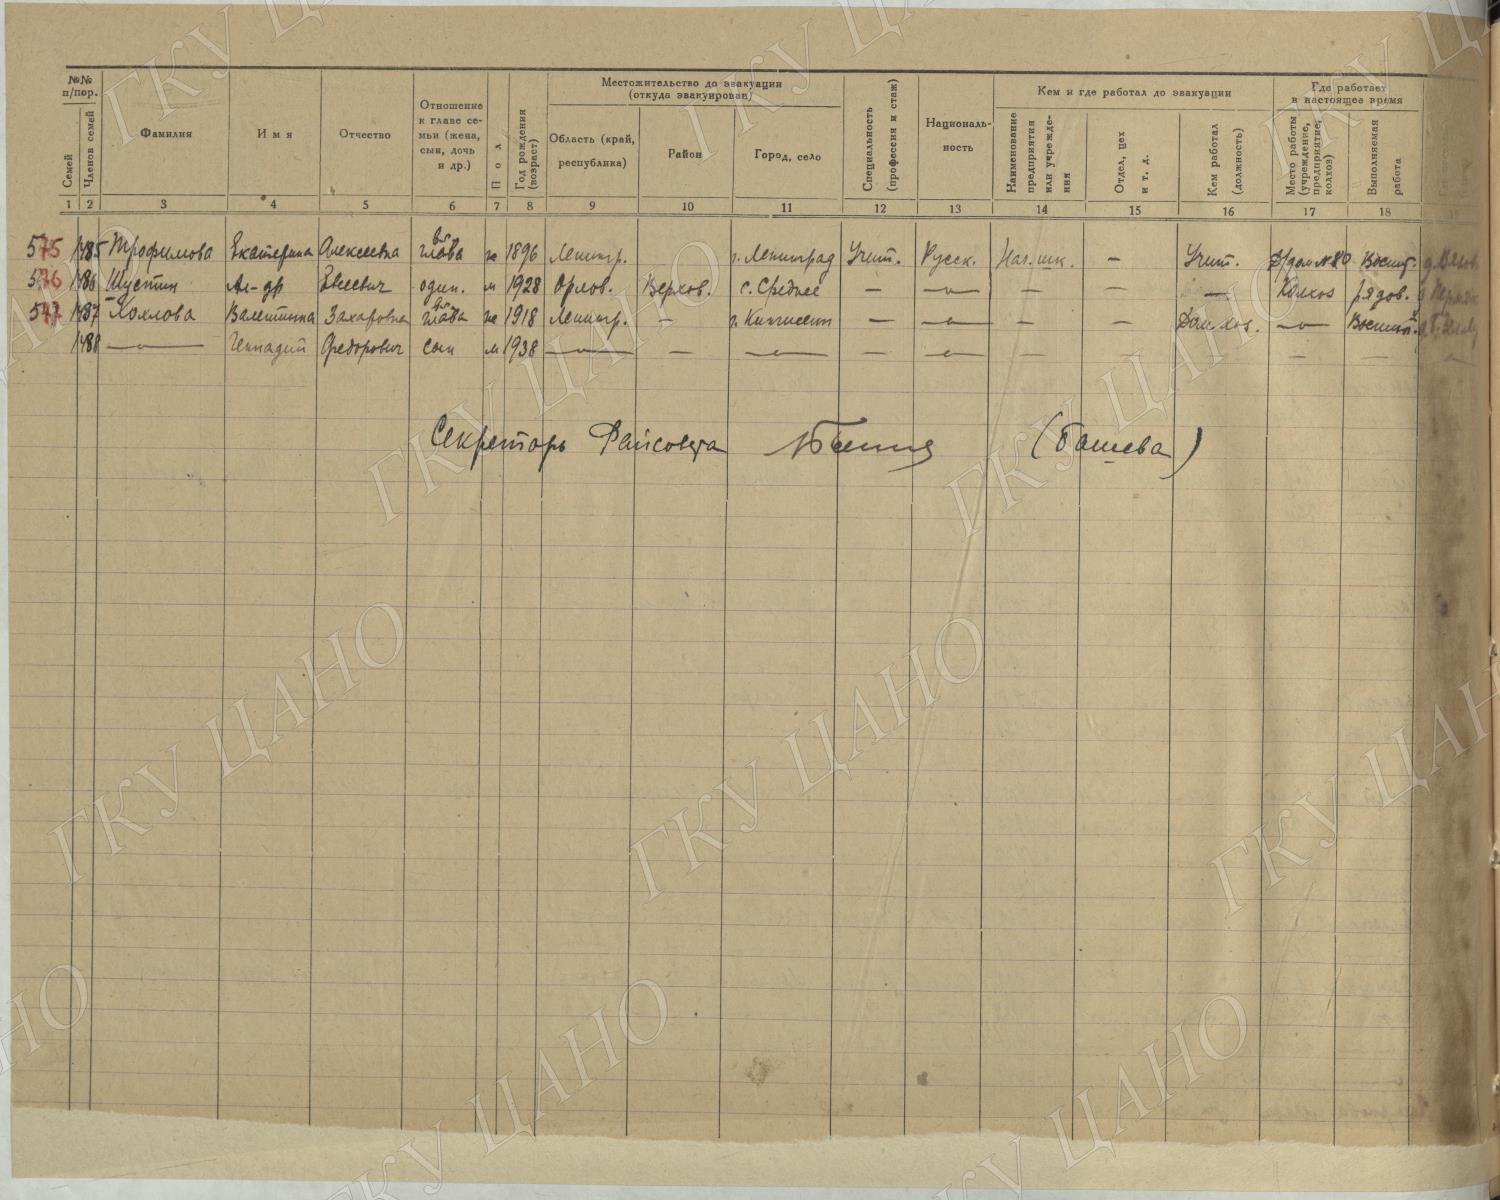 №№ п/пор.
Семей
Членов семей
Фамилия
Имя
Отчество
Отношение к главе семьи (жена, сын, дочь и др.)
Пол
Год рождения (возраст)
Местожительство до эвакуации (откуда эвакуирован)
Область (край, республика)
Район
Город, село
Специальность (профессия и стаж)
Националь-
ность
Кем и где работал до эвакуации
Наименование предприятия или учреждения
Отдел, цех и т. д.
Кем работал (должность)
Где работает в настоящее время
Место работы (учреждение, предприятие, колхоз)
Выполняемая работа
1 2 3 4 5 6 7 8 9 10 11 12 13 14 15 16 17 18
575 1485 Трофимова Екатерина Алексеевна глава ж 1896 Ленингр. г. Ленинград Учит. Русск. Нач. шк. — Учит. Д/дом №80 Воспит.
576 1486 Шустин Ал-др Евсеевич один. м 1928 Орлов. Верхов. с. Среднее — —"— — — — Колхоз рядов.
577 1487 Хохлова Валентина Захаровна глава ж 1918 Ленингр. — г. Кингисепп — —"— — — Дом. хоз. —"— Воспит.
1488 —"— Геннадий Федорович сын м 1938 —"— — —"— — —"— — — — —
Секретарь Райсовета (Башева)
ГКУ ЦАНО